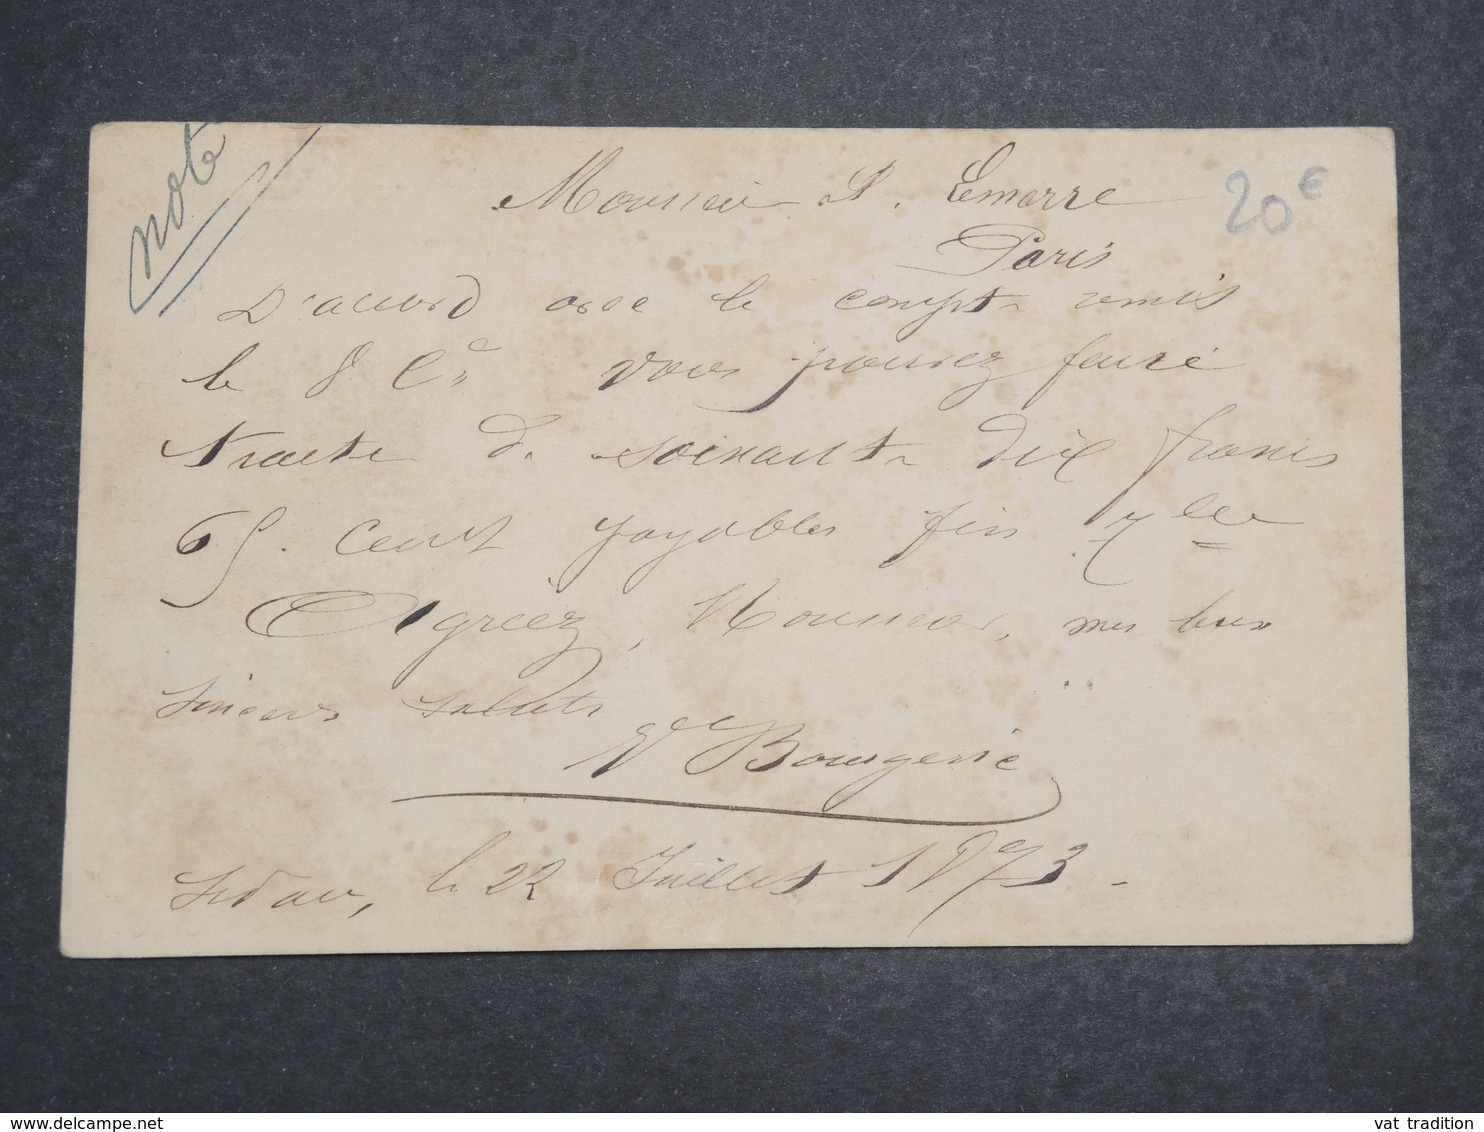 note
20€
Monsieur A. Lemerre
Paris
D'accord avec le compte remis
le 8 Ct vous pourrez faire
traite de soixante dix francs
65. Cent payables fin 7bre
Agréez, Monsieur, mes bien
sincères saluts
Ve Bourgerie
Sedan, le 22 Juillet 1873.
vat tradition